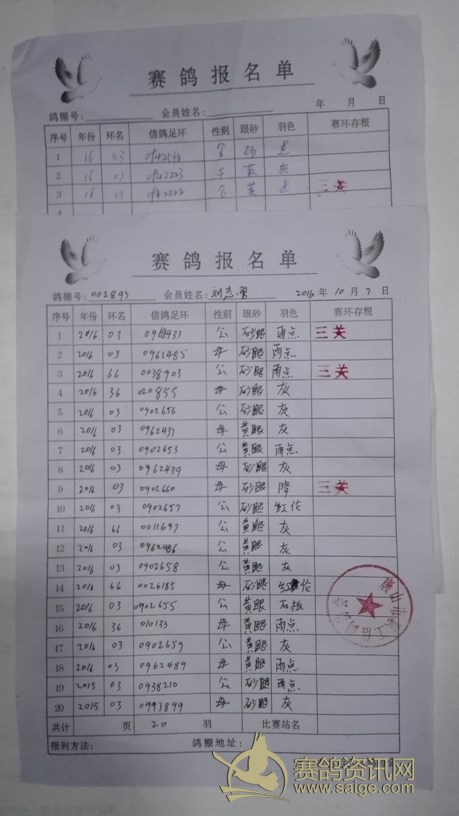 赛鸽报名单
鸽棚号: 会员姓名: 年 月 日
序号 年份 环名 信鸽足环 性别 眼砂 羽色 赛环存根
1 16 03
2 16 03 灰
3 16 03 黄 三关
赛鸽报名单
鸽棚号: 002893 会员姓名: 刘志 2016年10月7日
序号 年份 环名 信鸽足环 性别 眼砂 羽色 赛环存根
1 2016 03 0962433 公 砂眼 雨点 三关
2 2016 03 0962485 母 砂眼 雨点
3 2016 66 0038903 公 砂眼 雨点 三关
4 2016 36 020855 母 砂眼 灰
5 2016 03 0902656 公 砂眼 灰
6 2016 03 0962431 母 黄眼 灰
7 2016 03 0902653 公 黄眼 雨点
8 2016 03 0962439 母 砂眼 灰
9 2016 03 0902660 母 砂眼 降 三关
10 2016 03 0902657 公 砂眼 红伦
11 2016 66 0011697 公 黄眼 灰
12 2016 03 0962486 公 黄眼 灰
13 2016 03 0902658 公 黄眼 灰
14 2016 66 0026185 母 砂眼 伦
15 2016 03 0902655 公 黄眼 石板
16 2016 36 010133 母 黄眼 雨点
17 2016 03 0902659 母 黄眼 灰
18 2016 03 0962489 母 黄眼 雨点
19 2015 03 0938210 公 砂眼 雨点
20 2015 03 0993899 母 砂眼 灰
共计 页 20 羽 比赛站名
报到方法: 鸽棚地址:
赛鸽资讯网
www.saige.com